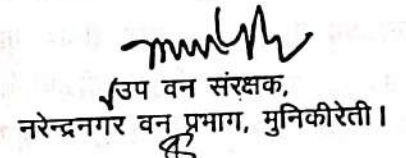 उप वन संरक्षक,
नरेन्द्रनगर वन प्रभाग, मुनिकीरेती।